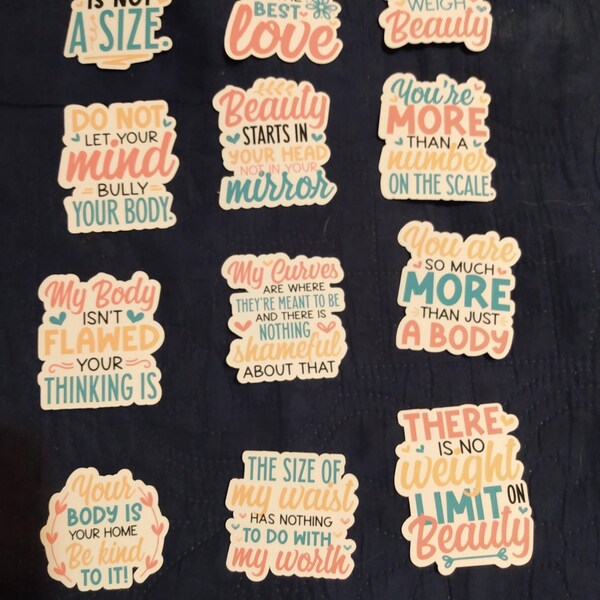 IS NOT
A SIZE.
BEST
love
WEIGH
Beauty
DO NOT
LET YOUR
mind
BULLY
YOUR BODY.
Beauty
STARTS IN
YOUR HEAD
NOT IN YOUR
mirror
You're
MORE
THAN A
number
ON THE SCALE.
My Body
ISN'T
FLAWED
YOUR
THINKING IS
My Curves
ARE WHERE
THEY'RE MEANT TO BE
AND THERE IS
NOTHING
shameful
ABOUT THAT
You are
SO MUCH
MORE
THAN JUST
A BODY
Your
BODY IS
YOUR HOME
Be kind
TO IT!
THE SIZE OF
my waist
HAS NOTHING
TO DO WITH
my worth
THERE
IS NO
weight
LIMIT ON
Beauty